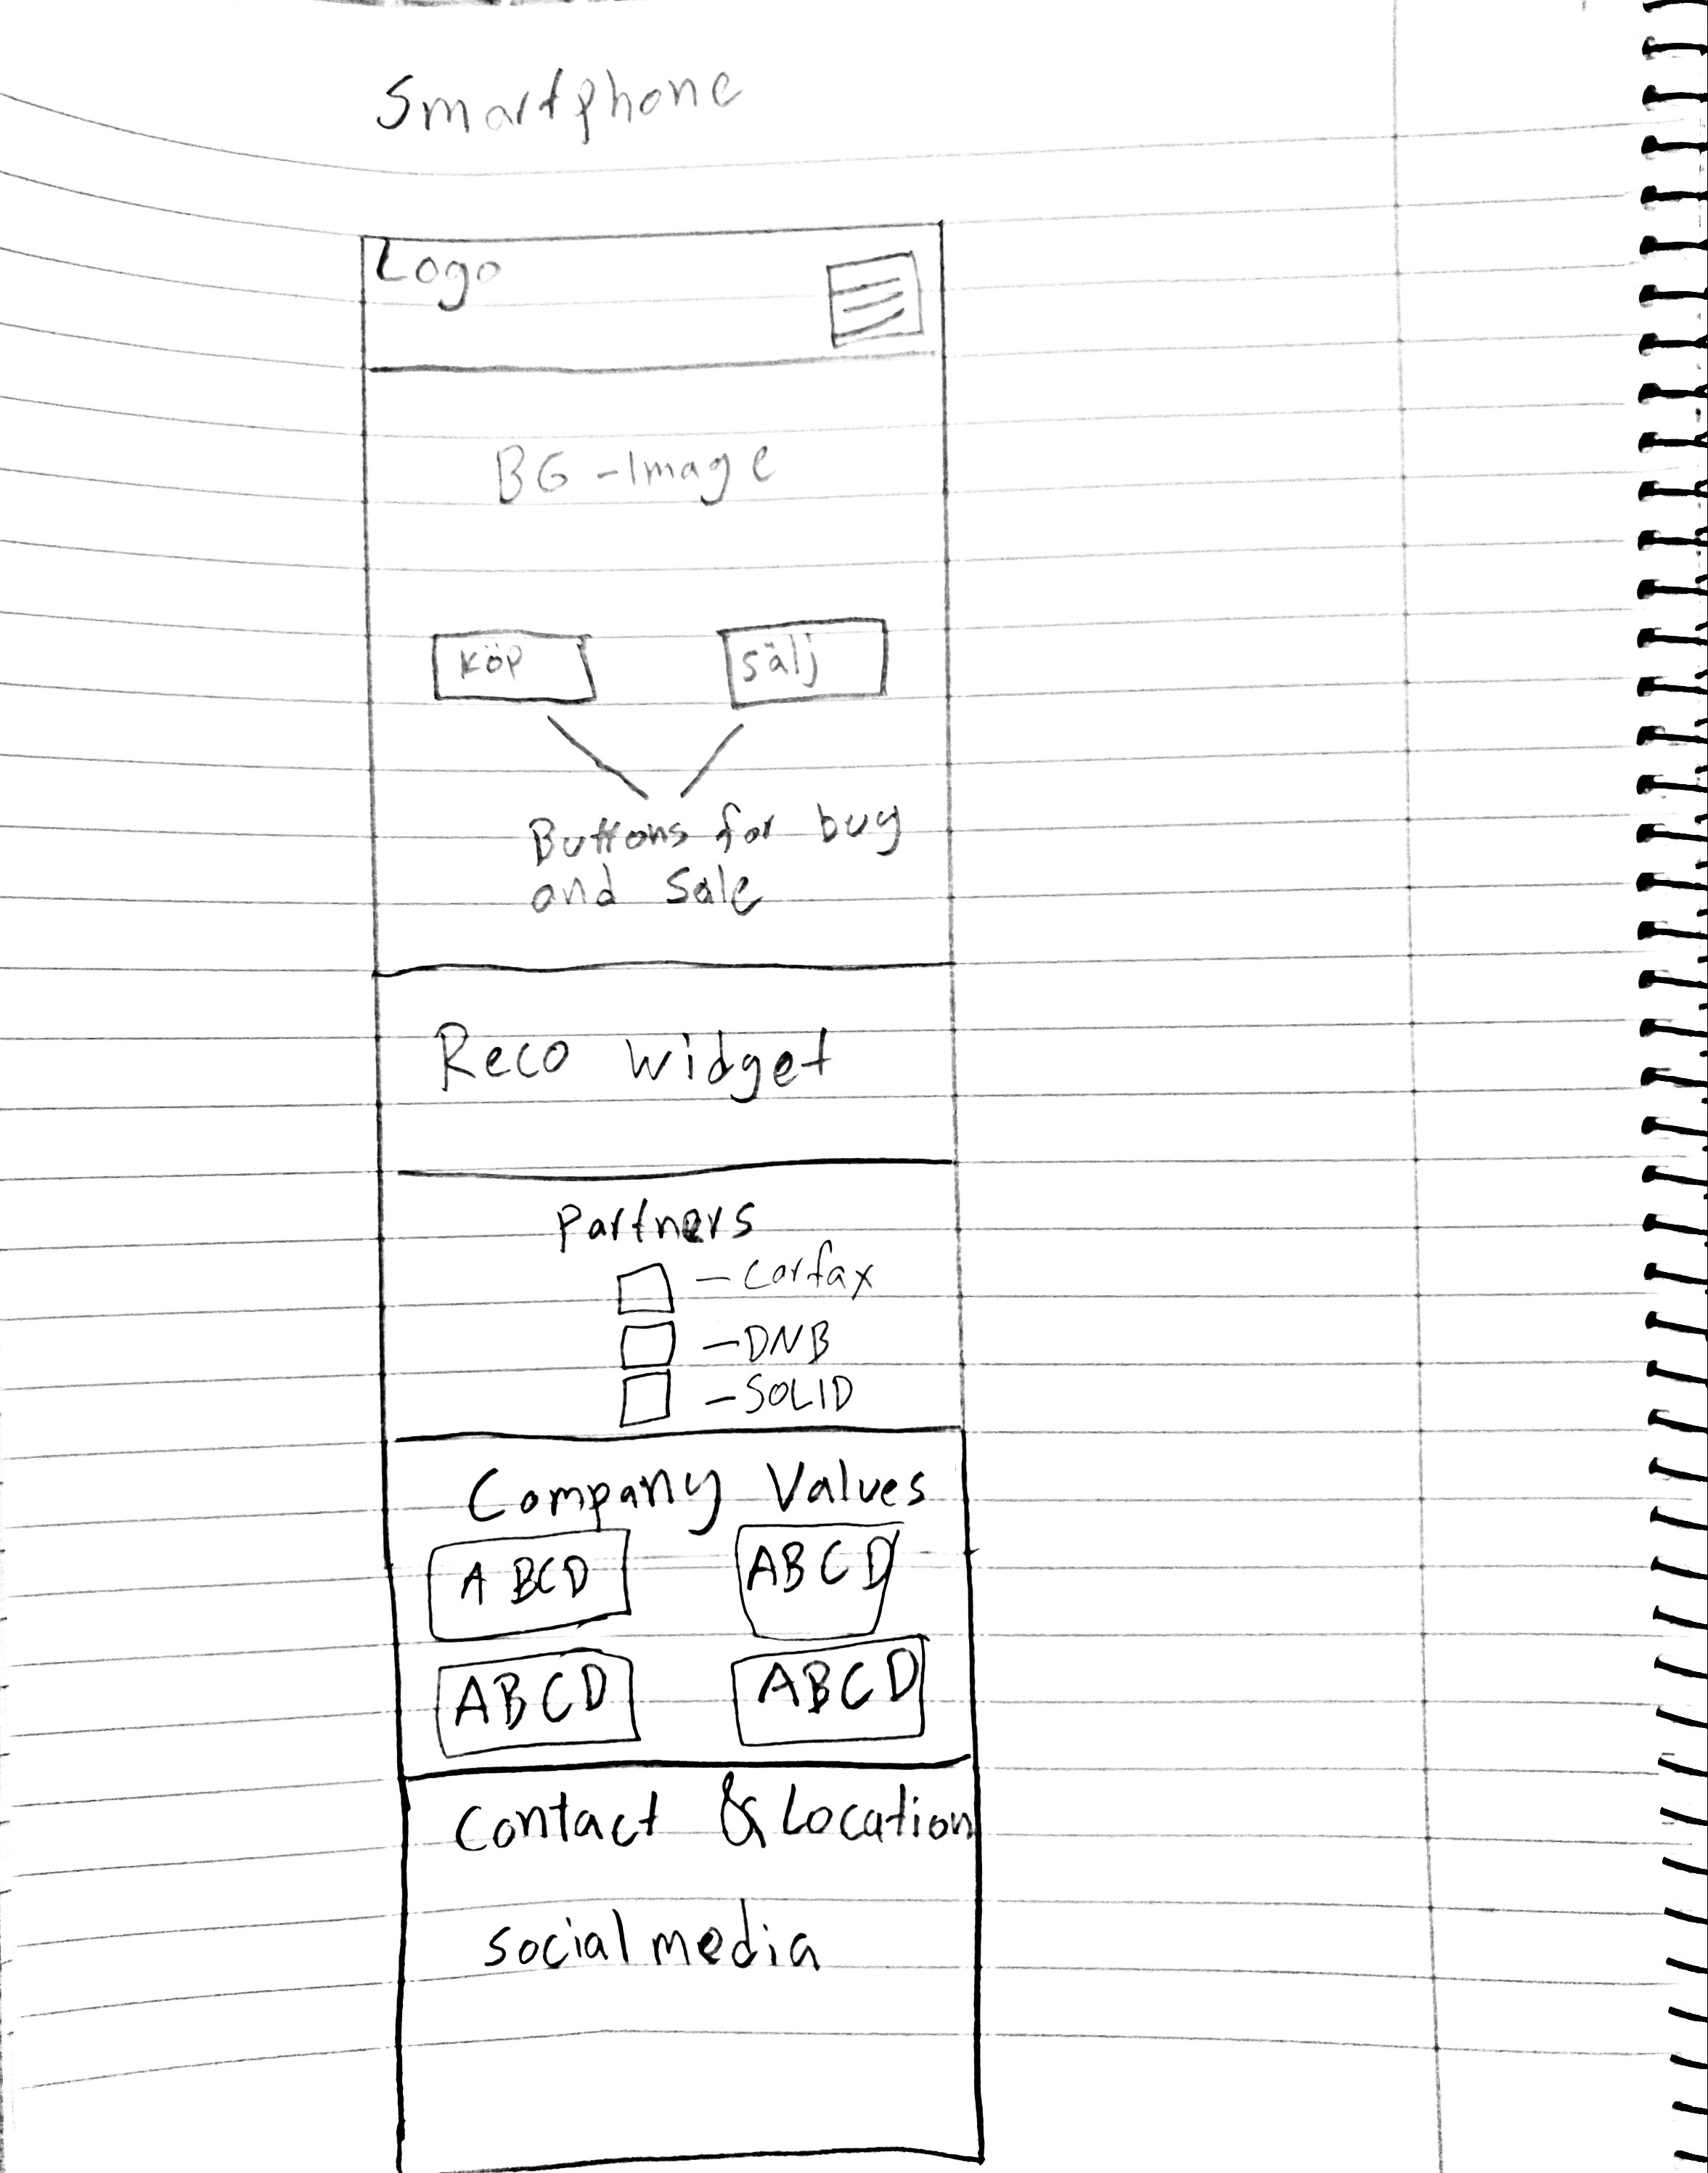 Smartphone
Logo
BG-Image
köp sälj
Buttons for buy
and Sale
Reco widget
Partners
- Carfax
- DNB
- SOLID
Company Values
ABCD ABCD
ABCD ABCD
Contact & Location
social media